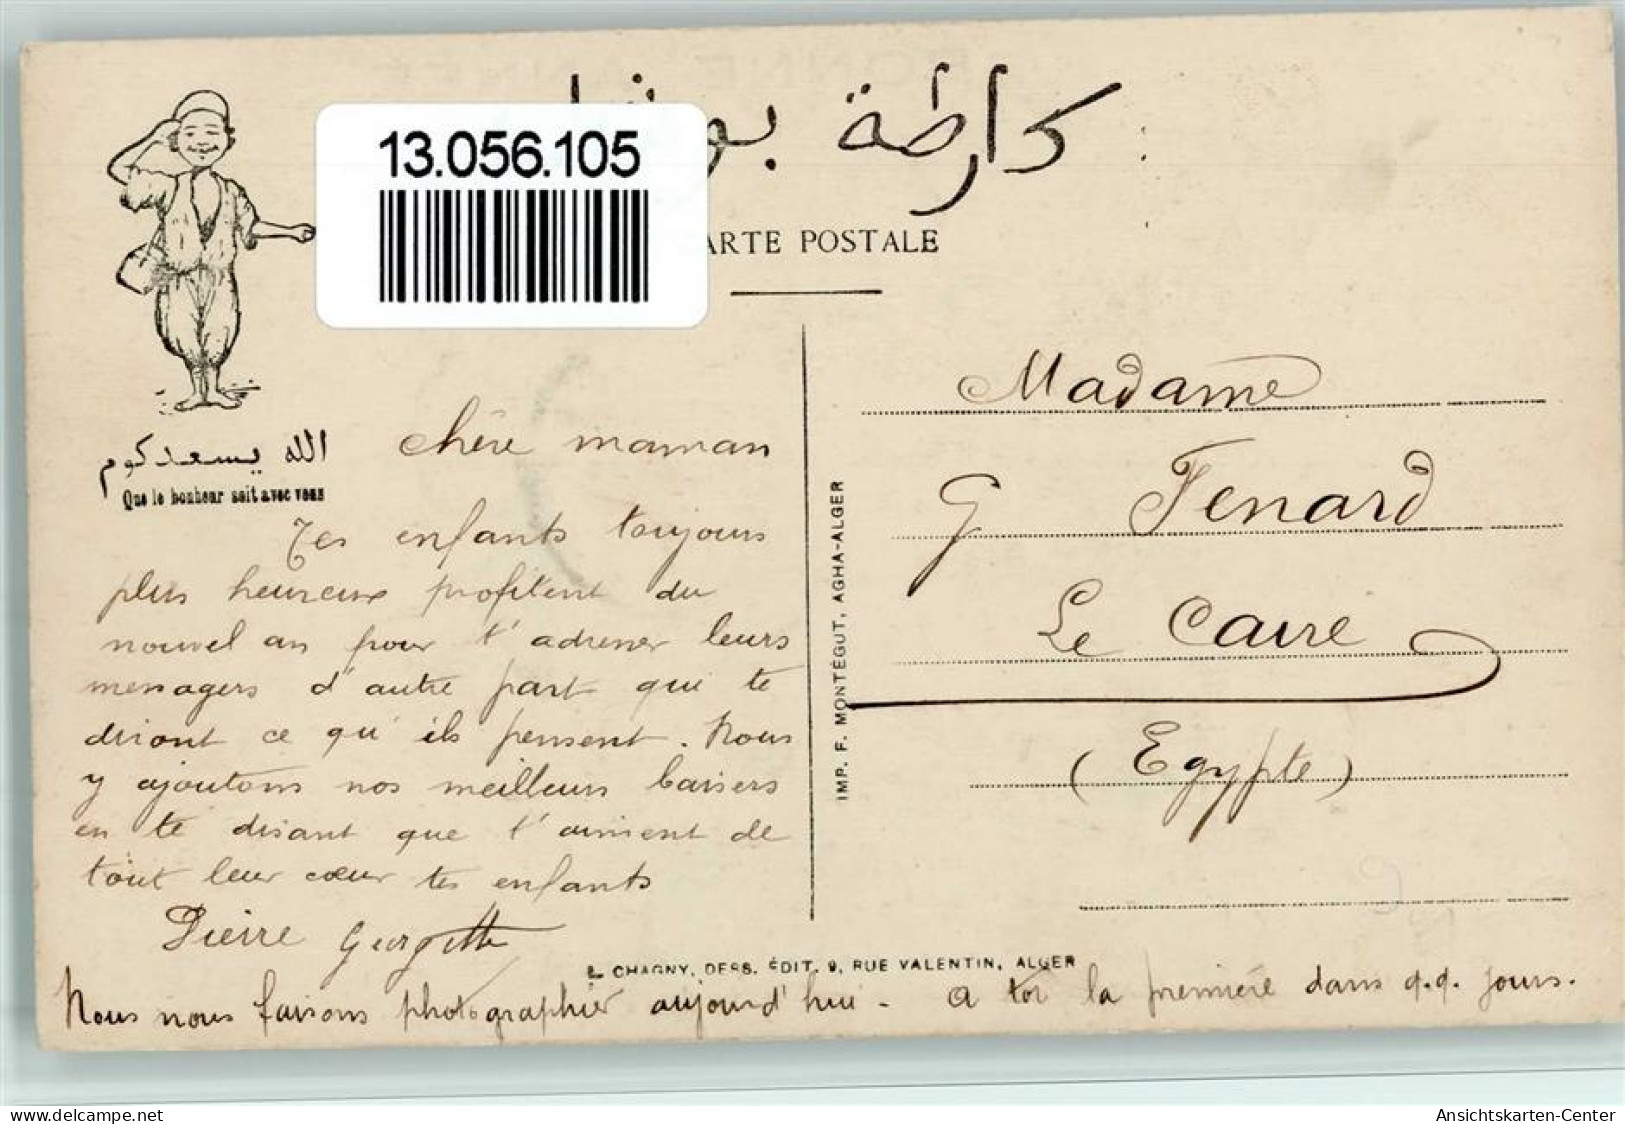 13.056.105
كارطة
ARTE POSTALE
الله يسعدكوم
Que le bonheur soit avec vous
Chère maman
Tes enfants toujours
plus heureux profitent du
nouvel an pour t'adresser leurs
messagers d'autre part qui te
diront ce qu'ils pensent. Nous
y ajoutons nos meilleurs baisers
en te disant que t'aiment de
tout leur cœur tes enfants
Pierre Georgette
Nous nous faisons photographier aujourd'hui - A toi la première dans q.q. jours.
Madame
G Fenard
Le Caire
(Egypte)
IMP. F. MONTÉGUT, AGHA-ALGER
CHAGNY, DESS. ÉDIT. 9, RUE VALENTIN, ALGER
delcampe.net
Ansichtskarten-Center